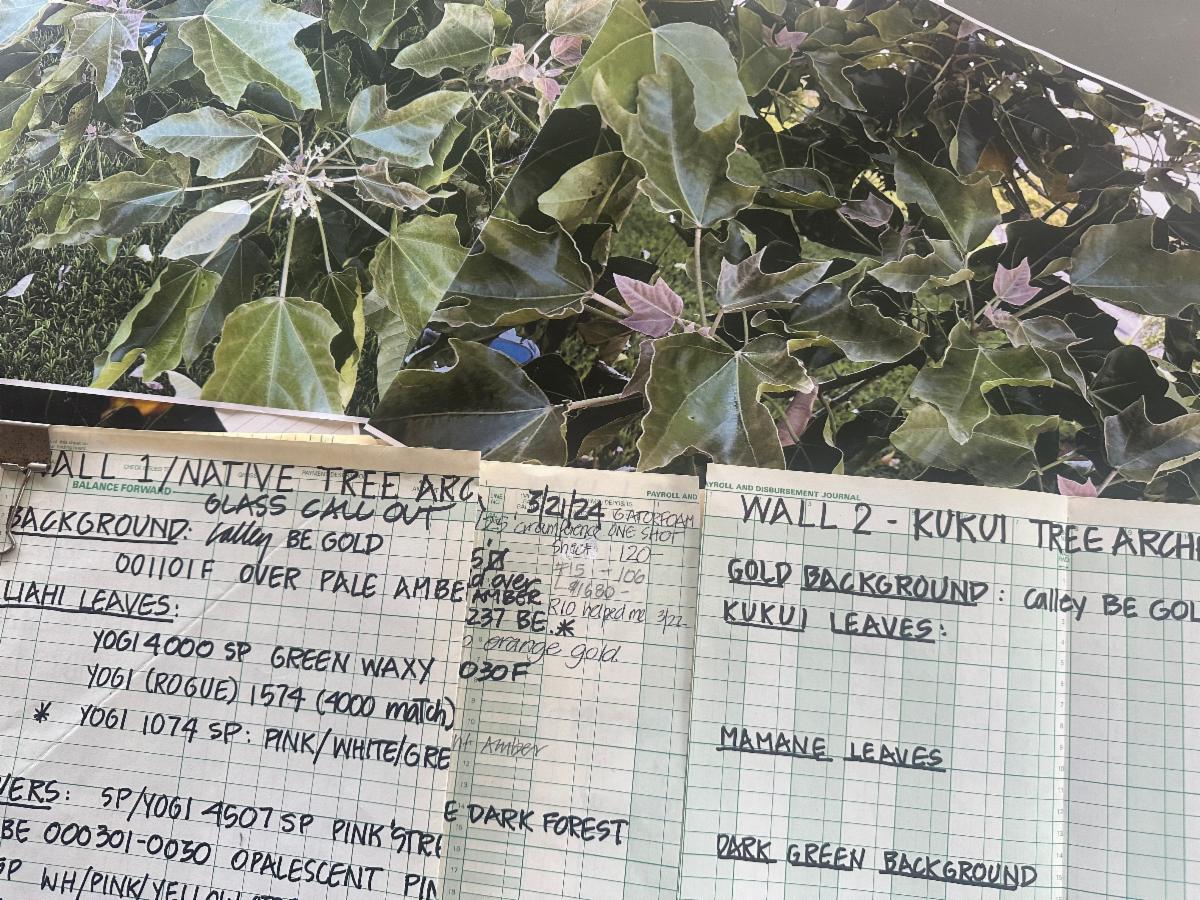 ALL 1/NATIVE TREE ARC
BALANCE FORWARD
GLASS CALL OUT
BACKGROUND: Calley BE GOLD
001101F OVER PALE AMBE
LIAHI LEAVES:
YOGI 4000 SP GREEN WAXY
YOGI (ROGUE) 1574 (4000 match)
* YOGI 1074 SP: PINK/WHITE/GRE
VERS: SP/YOGI 4507 SP PINK STRE
BE 000301-0030 OPALESCENT PIN
SP WH/PINK/YELLOW
PAYROLL AND
3/21/24 GATORFOAM
circumference ONE SHOT
120
#15 - 106
$1680-
d over
AMBER
RIO helped me 3/22
237 BE.*
orange gold
030F
Amber
E DARK FOREST
PAYROLL AND DISBURSEMENT JOURNAL
WALL 2 - KUKUI TREE ARCH
GOLD BACKGROUND: Calley BE GOL
KUKUI LEAVES:
MAMANE LEAVES
DARK GREEN BACKGROUND